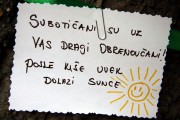 SUBOTIČANI SU UZ
VAS DRAGI OBRENOVČANI!
POSLE KIŠE UVEK
DOLAZI SUNCE